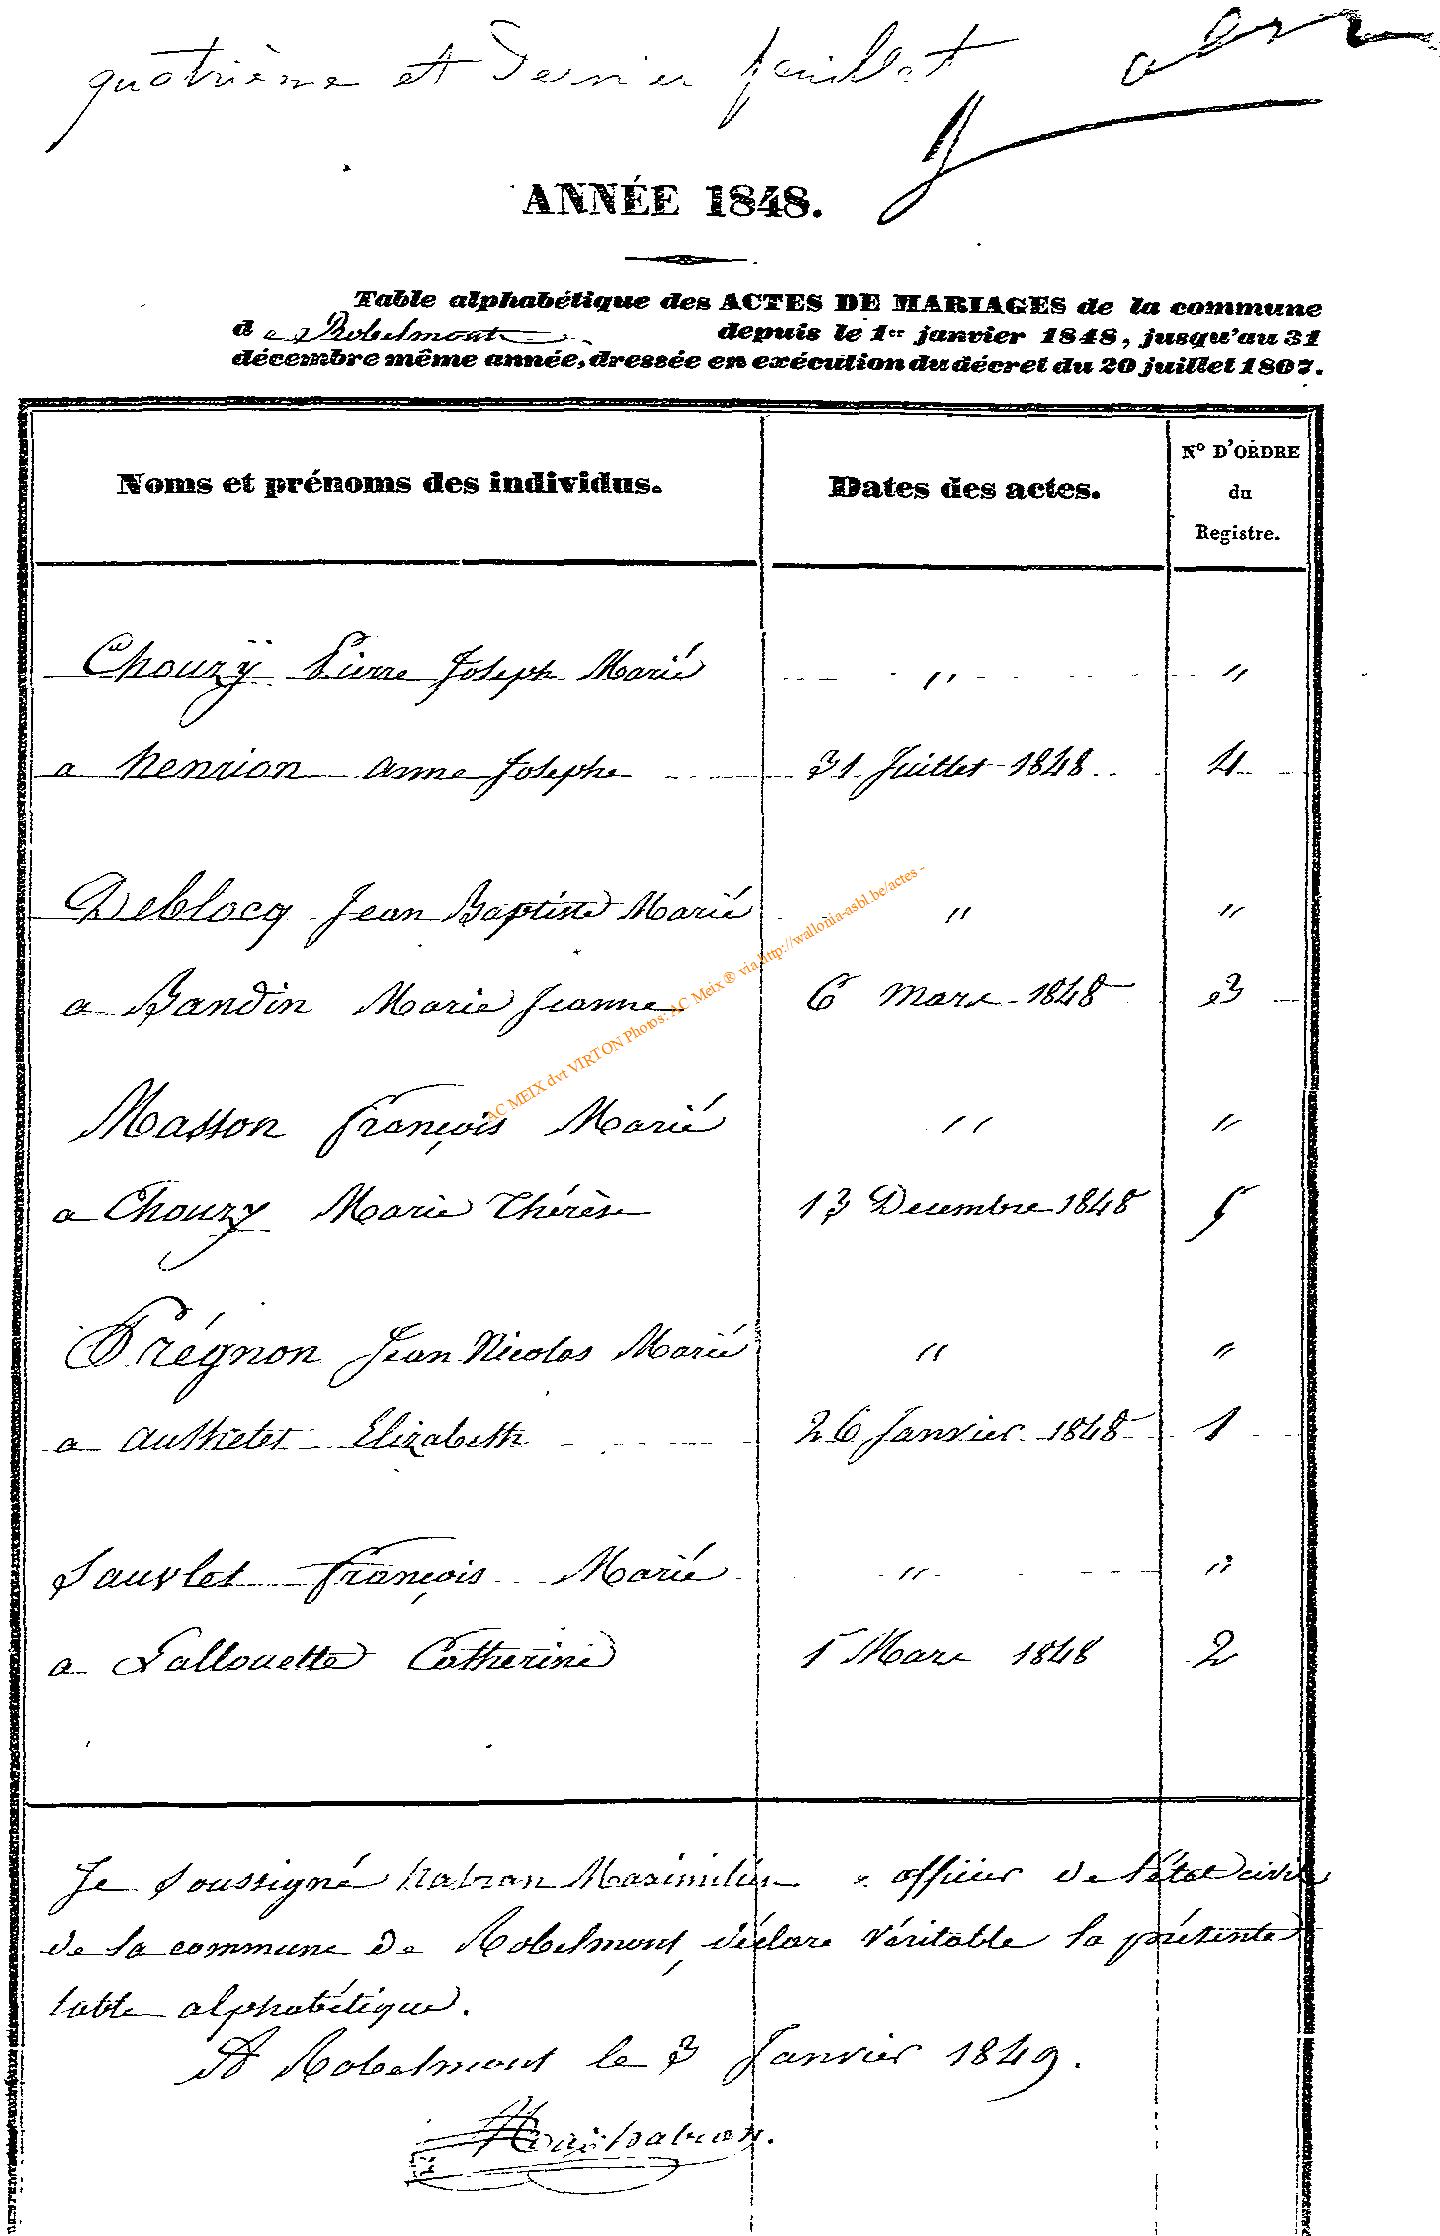 quatrième et dernier feuillet
ANNÉE 1848.
Table alphabétique des ACTES DE MARIAGES de la commune
de Robelmont depuis le 1er janvier 1848, jusqu'au 31
décembre même année, dressée en exécution du décret du 20 juillet 1807.
Noms et prénoms des individus. Dates des actes. No D'ORDRE
du
Registre.
Chouzÿ Pierre Joseph Marié " "
a henrion anne Josephe 31 Juillet 1848 4
Deblocq Jean Baptiste Marié " "
a Bandin Marie Jeanne 6 Mars 1848 3
Masson François Marié " "
a Chouzy Marie Thérèse 13 Decembre 1848 5
Prégnon Jean Nicolas Marié " "
a authelet Elizabeth 26 Janvier 1848 1
Sauvlet François Marié " "
a Lallouette Catherine 1 Mars 1848 2
Je soussigné habran Maximilien officier de l'état civil
de la commune de Robelmont, déclare véritable la présente
table alphabétique.
A Robelmont le 3 Janvier 1849.
habran.
AC MEIX dvt VIRTON Photos: AC Meix ® via http://wallonia-asbl.be/actes -